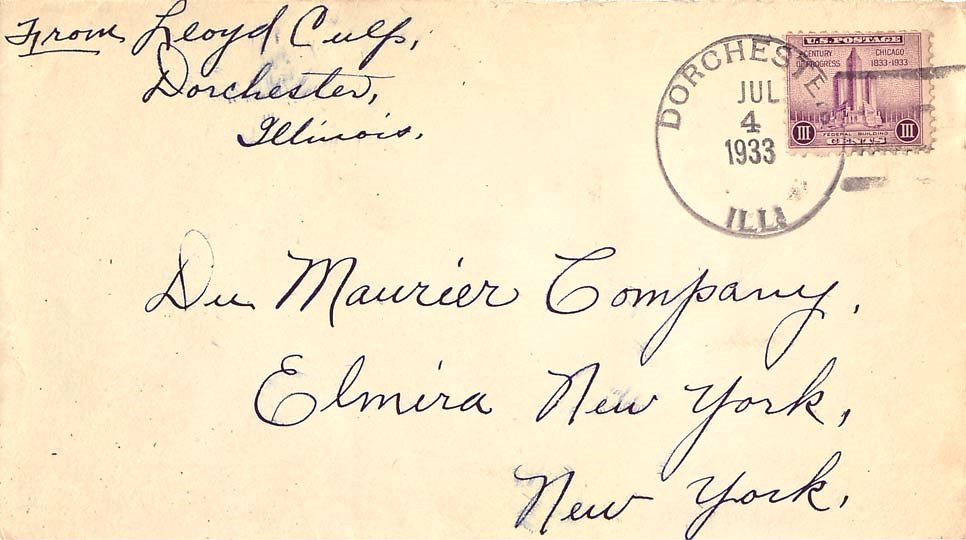 From Lloyd Culp,
Dorchester,
Illinois.
DORCHESTER,
JUL
4
1933
ILL
U.S. POSTAGE
CENTURY OF PROGRESS
CHICAGO 1833-1933
III
FEDERAL BUILDING
III
CENTS
Du Maurier Company,
Elmira New York,
New York,